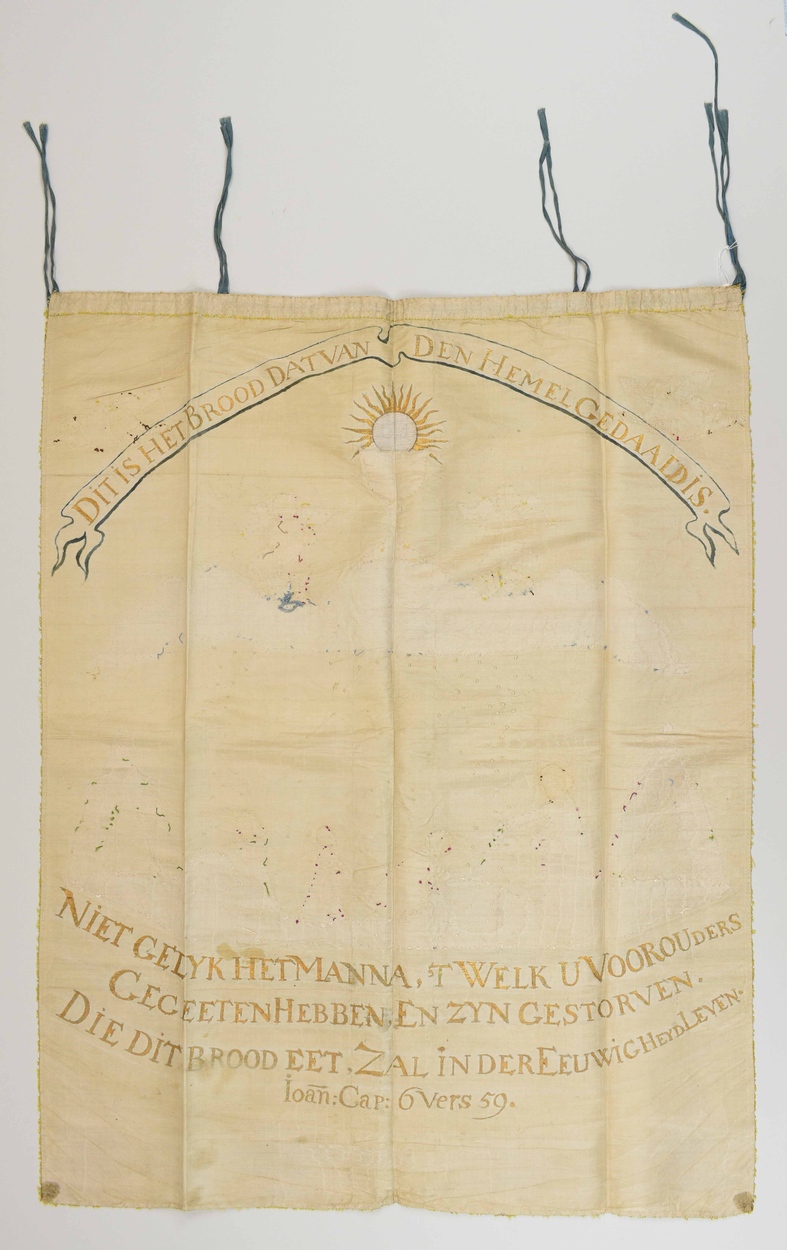 DIT IS HET BROOD DAT VAN DEN HEMEL GEDAALD IS.
NIET GELYK HET MANNA, 'T WELK U VOOROUDERS
GEGEETEN HEBBEN, EN ZYN GESTORVEN.
DIE DIT BROOD EET, ZAL IN DER EEUWIGHEYD LEVEN.
Ioan̄: Cap: 6 Vers 59.